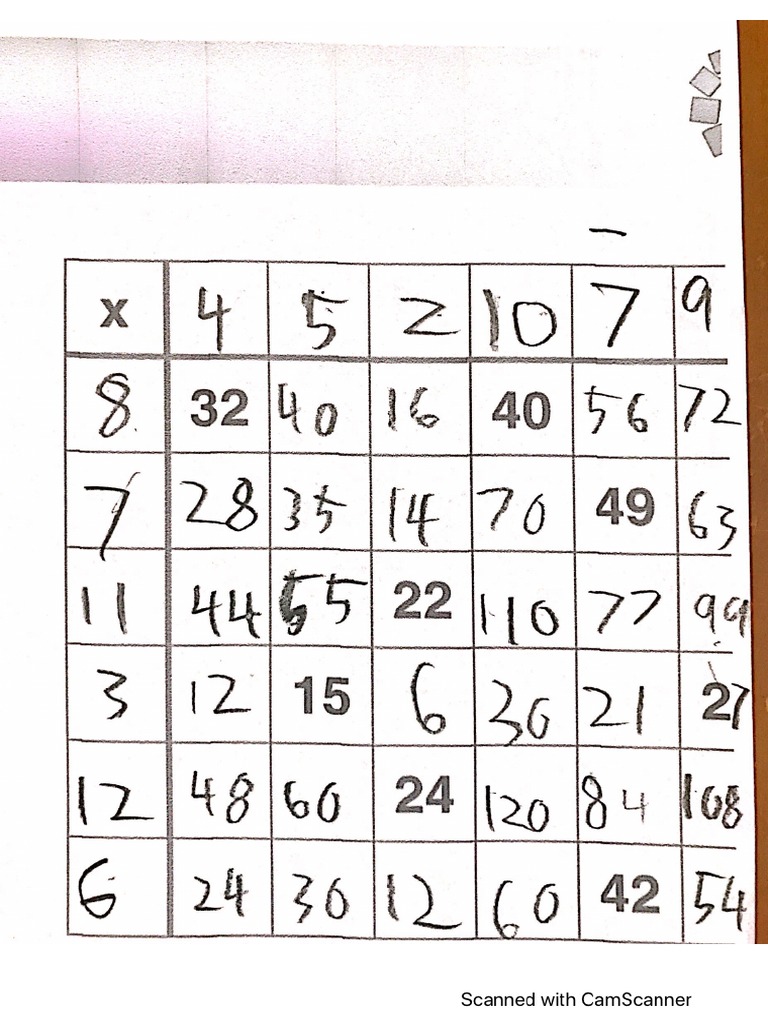 x 4 5 2 10 7 9
8 32 40 16 40 56 72
7 28 35 14 70 49 63
11 44 55 22 110 77 99
3 12 15 6 30 21 27
12 48 60 24 120 84 108
6 24 30 12 60 42 54
Scanned with CamScanner